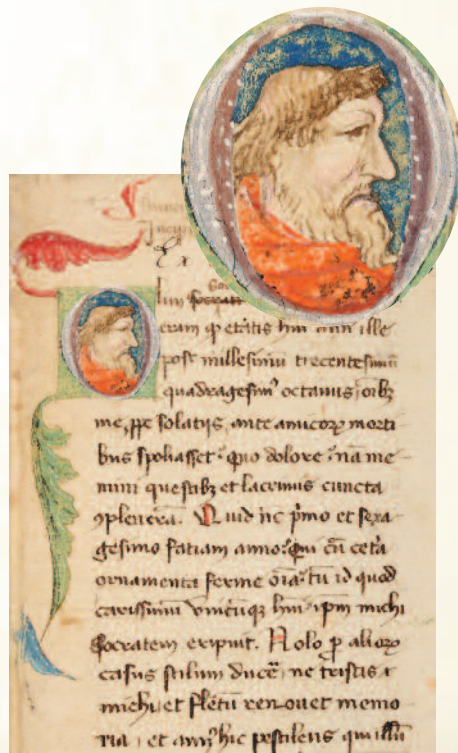 lim Socrati
eram ꝙ etatis hui ann ille
post millesimū trecentesimū
quadragesimꝰ octauus, oībꝫ
me, ꝓpe solatijs, ante amicoꝝ morti
bus spoliasset: quo dolore: nā me
mini questibꝫ et lacrimis cuncta
ꝯpleuerā. Quid nc pͥmo et sexa
gesimo fatiam anno: qui cū ceta
ornamenta ferme oīa: tū id quod
carissimū vnicūqꝫ hui ipm michi
Socratem eripuit. Nolo ꝑ alioꝝ
casus stilum ducē, ne tristis
michi et fletū renouet memo
ria, et annꝰ hic pestilens qui illū